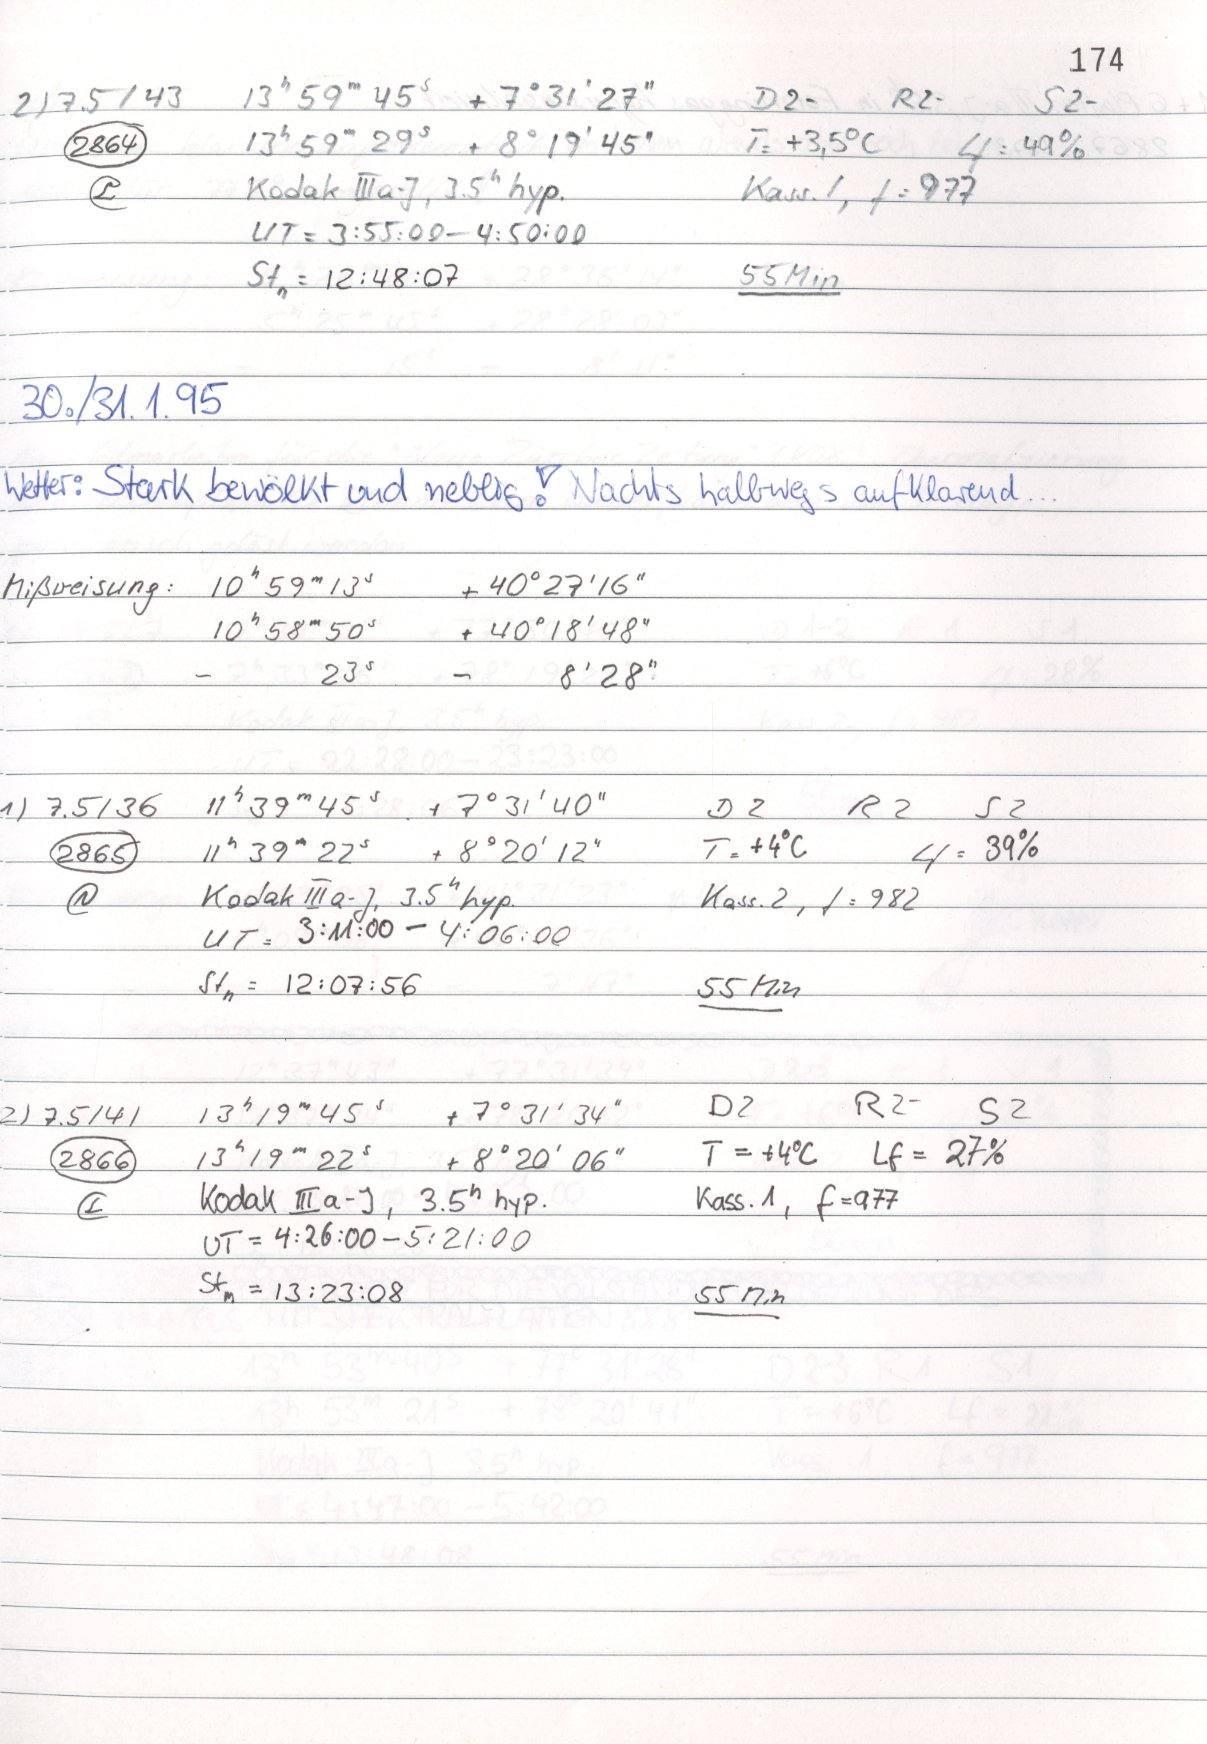 174
2) 7.5/43 13ʰ 59ᵐ 45ˢ + 7° 31' 27" D2- R2- S2-
2864 13ʰ 59ᵐ 29ˢ + 8° 19' 45" T = +3,5°C Lf = 49%
Kodak IIIa-J, 3.5ʰ hyp. Kass. 1, f = 977
UT = 3:55:00 – 4:50:00
Stₙ = 12:48:07 55 Min
30./31.1.95
Wetter: Stark bewölkt und neblig! Nachts halbwegs aufklarend...
Mißweisung: 10ʰ 59ᵐ 13ˢ + 40° 27' 16"
10ʰ 58ᵐ 50ˢ + 40° 18' 48"
- 23ˢ - 8' 28"
1) 7.5/36 11ʰ 39ᵐ 45ˢ + 7° 31' 40" D2 R2 S2
2865 11ʰ 39ᵐ 22ˢ + 8° 20' 12" T = +4°C Lf = 39%
N Kodak IIIa-J, 3.5ʰ hyp. Kass. 2, f = 982
UT = 3:11:00 – 4:06:00
Stₙ = 12:07:56 55 Min
2) 7.5/41 13ʰ 19ᵐ 45ˢ + 7° 31' 34" D2 R2- S2
2866 13ʰ 19ᵐ 22ˢ + 8° 20' 06" T = +4°C Lf = 27%
Kodak IIIa-J, 3.5ʰ hyp. Kass. 1, f = 977
UT = 4:26:00 – 5:21:00
Stₘ = 13:23:08 55 Min